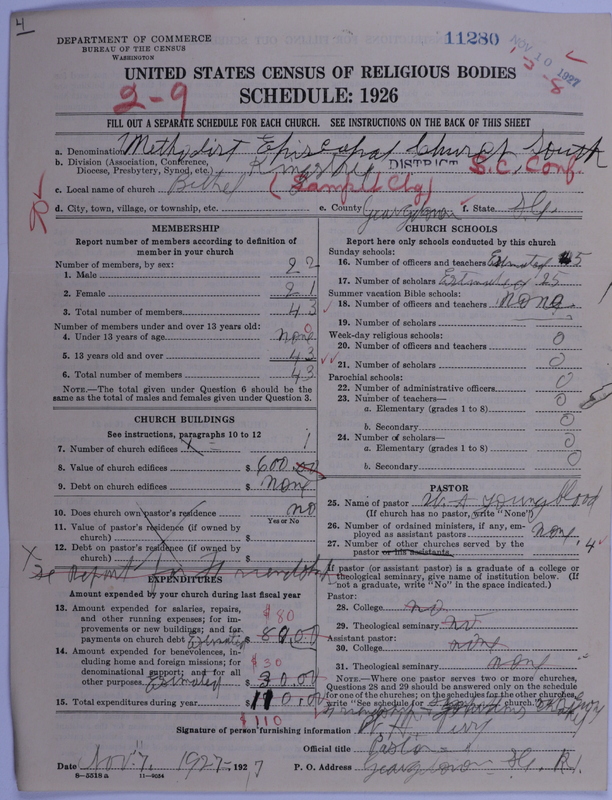 4
DEPARTMENT OF COMMERCE
BUREAU OF THE CENSUS
WASHINGTON
11280
NOV 10 1927
UNITED STATES CENSUS OF RELIGIOUS BODIES
2-9
SCHEDULE: 1926
FILL OUT A SEPARATE SCHEDULE FOR EACH CHURCH. SEE INSTRUCTIONS ON THE BACK OF THIS SHEET
a. Denomination Methodist Episcopal Church South
b. Division (Association, Conference, Diocese, Presbytery, Synod, etc.) DISTRICT S.C. Conf.
c. Local name of church Bethel (Sampit Chg)
d. City, town, village, or township, etc. e. County Georgetown f. State S.C.
MEMBERSHIP
Report number of members according to definition of
member in your church
Number of members, by sex:
1. Male 22
2. Female 21
3. Total number of members 43
Number of members under and over 13 years old:
4. Under 13 years of age none
5. 13 years old and over 43
6. Total number of members 43
NOTE.—The total given under Question 6 should be
same as the total of males and females given under Question 3.
CHURCH BUILDINGS
See instructions, paragraphs 10 to 12
7. Number of church edifices 1
8. Value of church edifices $ 600.00
9. Debt on church edifices $ none
10. Does church own pastor's residence no
Yes or No
11. Value of pastor's residence (if owned by
church) $
12. Debt on pastor's residence (if owned by
church) $
EXPENDITURES
Amount expended by your church during last fiscal year
13. Amount expended for salaries, repairs,
and other running expenses; for im-
provements or new buildings; and for
payments on church debt Estimated $ 80.00
$80
14. Amount expended for benevolences, in-
cluding home and foreign missions; for
denominational support; and for all
other purposes Estimated $ 30.00
$30
15. Total expenditures during year $ 110.00
$110
CHURCH SCHOOLS
Report here only schools conducted by this church
Sunday schools:
16. Number of officers and teachers Estimated 5
17. Number of scholars Estimated 25
Summer vacation Bible schools:
18. Number of officers and teachers none
19. Number of scholars
Week-day religious schools:
20. Number of officers and teachers 0
21. Number of scholars 0
Parochial schools:
22. Number of administrative officers 0
23. Number of teachers—
a. Elementary (grades 1 to 8) 0
b. Secondary 0
24. Number of scholars—
a. Elementary (grades 1 to 8) 0
b. Secondary 0
PASTOR
25. Name of pastor Youngblood
(If church has no pastor, write "None")
26. Number of ordained ministers, if any, em-
ployed as assistant pastors none
27. Number of other churches served by the
pastor or his assistants 4
If pastor (or assistant pastor) is a graduate of a college or
theological seminary, give name of institution below. (If
not a graduate, write "No" in the space indicated.)
Pastor:
28. College no
29. Theological seminary no
Assistant pastor:
30. College none
31. Theological seminary none
NOTE.—Where one pastor serves two or more churches,
Questions 28 and 29 should be answered only on the schedule
for one of the churches; on the schedules for the other churches,
write "See schedule for church."
Signature of person furnishing information
Official title Pastor
Date Nov. 7, 1927 1927 P. O. Address Georgetown S.C.
8—5518a 11—9054